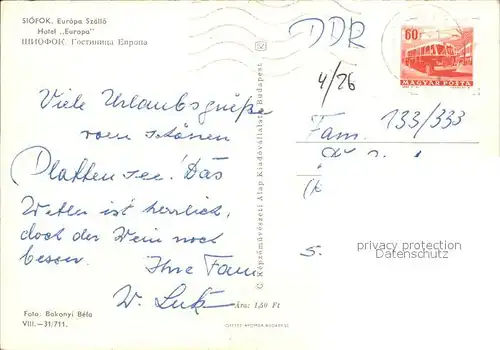 SIÓFOK. Európa Szálló
Hotel „Europa"
ШИОФОК. Гостиница Европа
DDR
4/26
60f
MAGYAR POSTA
133/333
Viele Urlaubsgrüße
vom schönen
Plattensee! Das
Wetter ist herrlich,
doch der Wein noch
besser.
Ihre Fam
W. Lutz
Fam.
S.
privacy protection
Datenschutz
© Képzőművészeti Alap Kiadóvállalata, Budapest
Ára: 1,50 Ft
Foto: Bakonyi Béla
VIII.—31/711.